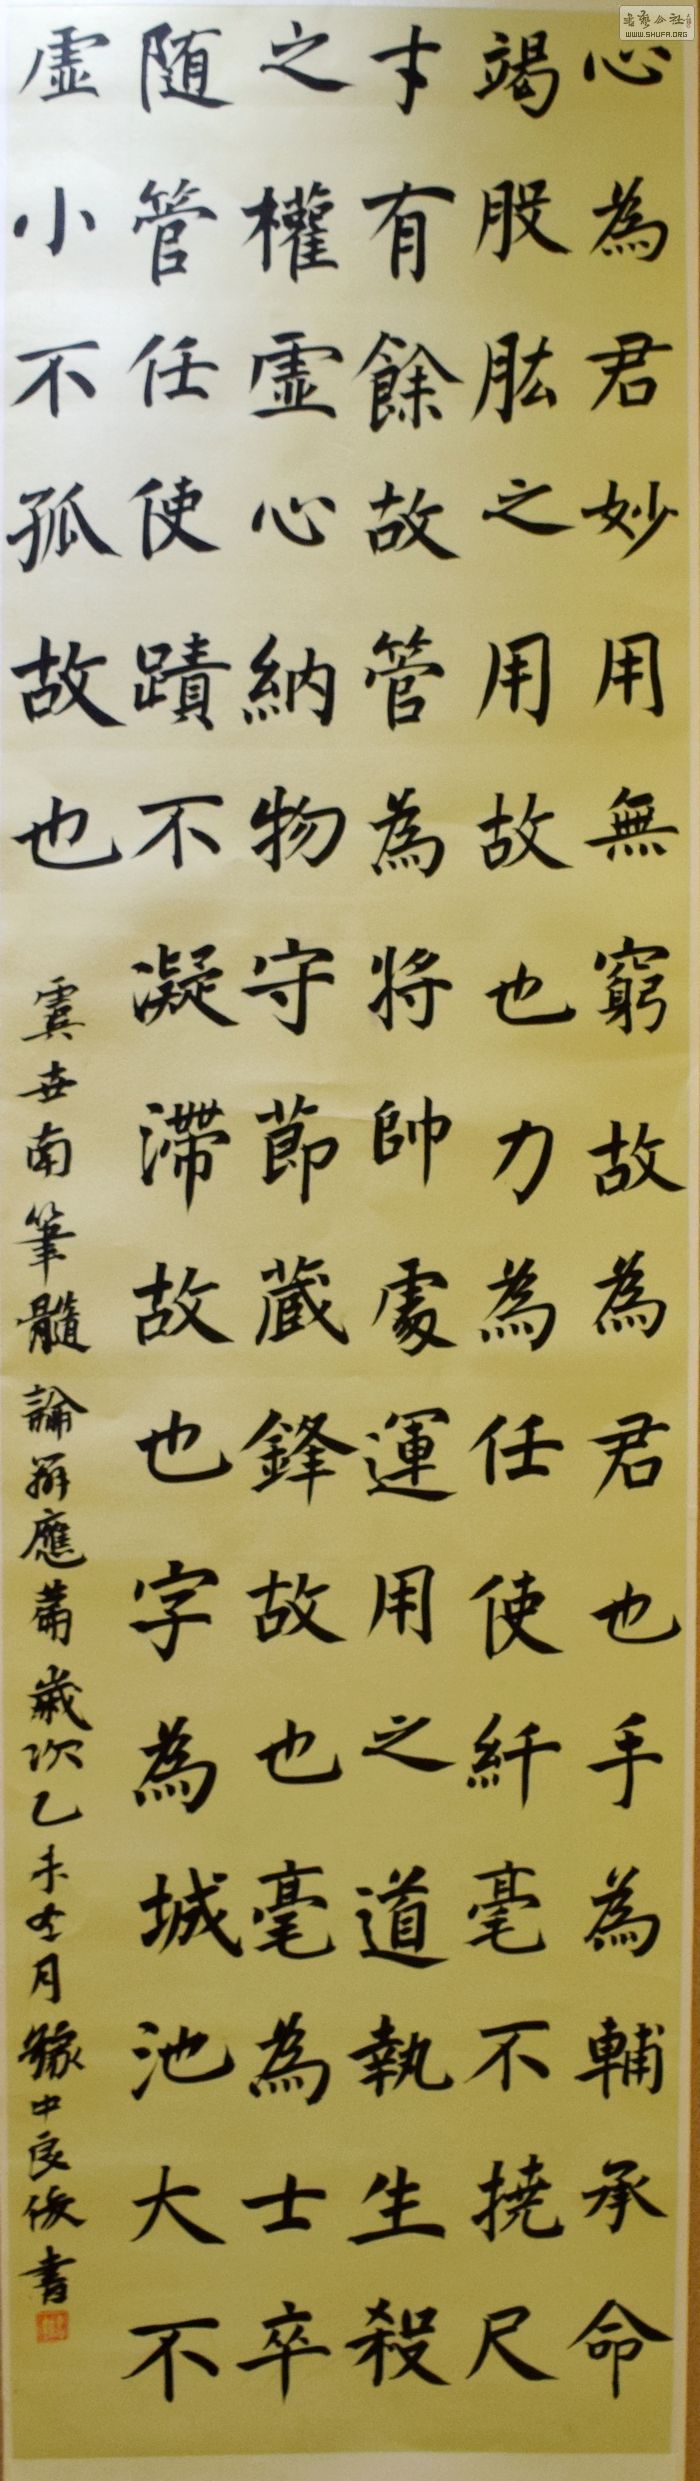 心為君妙用無窮故為君也手為輔承命
竭股肱之用故也力為任使纤毫不撓尺
寸有餘故管為將帥處運用之道執生殺
之權虛心納物守節藏鋒故也毫為士卒
随管任使蹟不凝滯故也字為城池大不
虛小不孤故也
虞世南筆髓論辨應篇歲次乙未冬月豫中良俊書
WWW.SHUFA.ORG